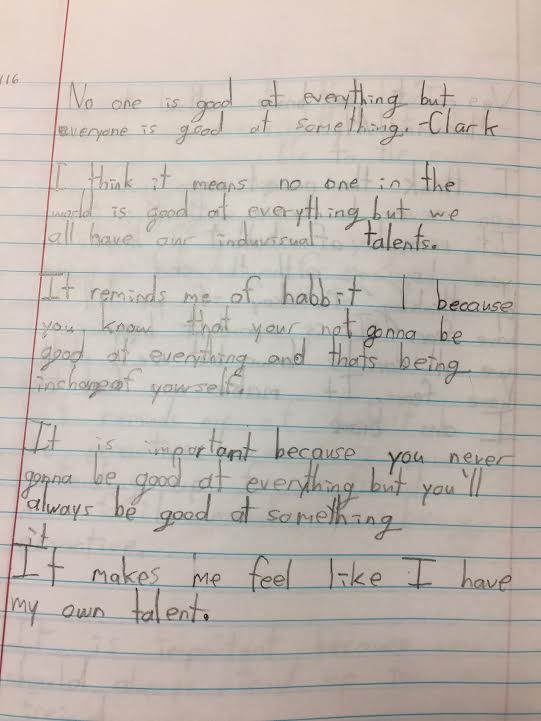 116
No one is good at everything but
everyone is good at something. -Clark
I think it means no one in the
world is good at everything but we
all have our induvisual talents.
It reminds me of habbit 1 because
you know that your not gonna be
good at everything and thats being
inchargeof yourself.
It is important because you never
gonna be good at everything but you'll
always be good at something
it
It makes me feel like I have
my own talent.